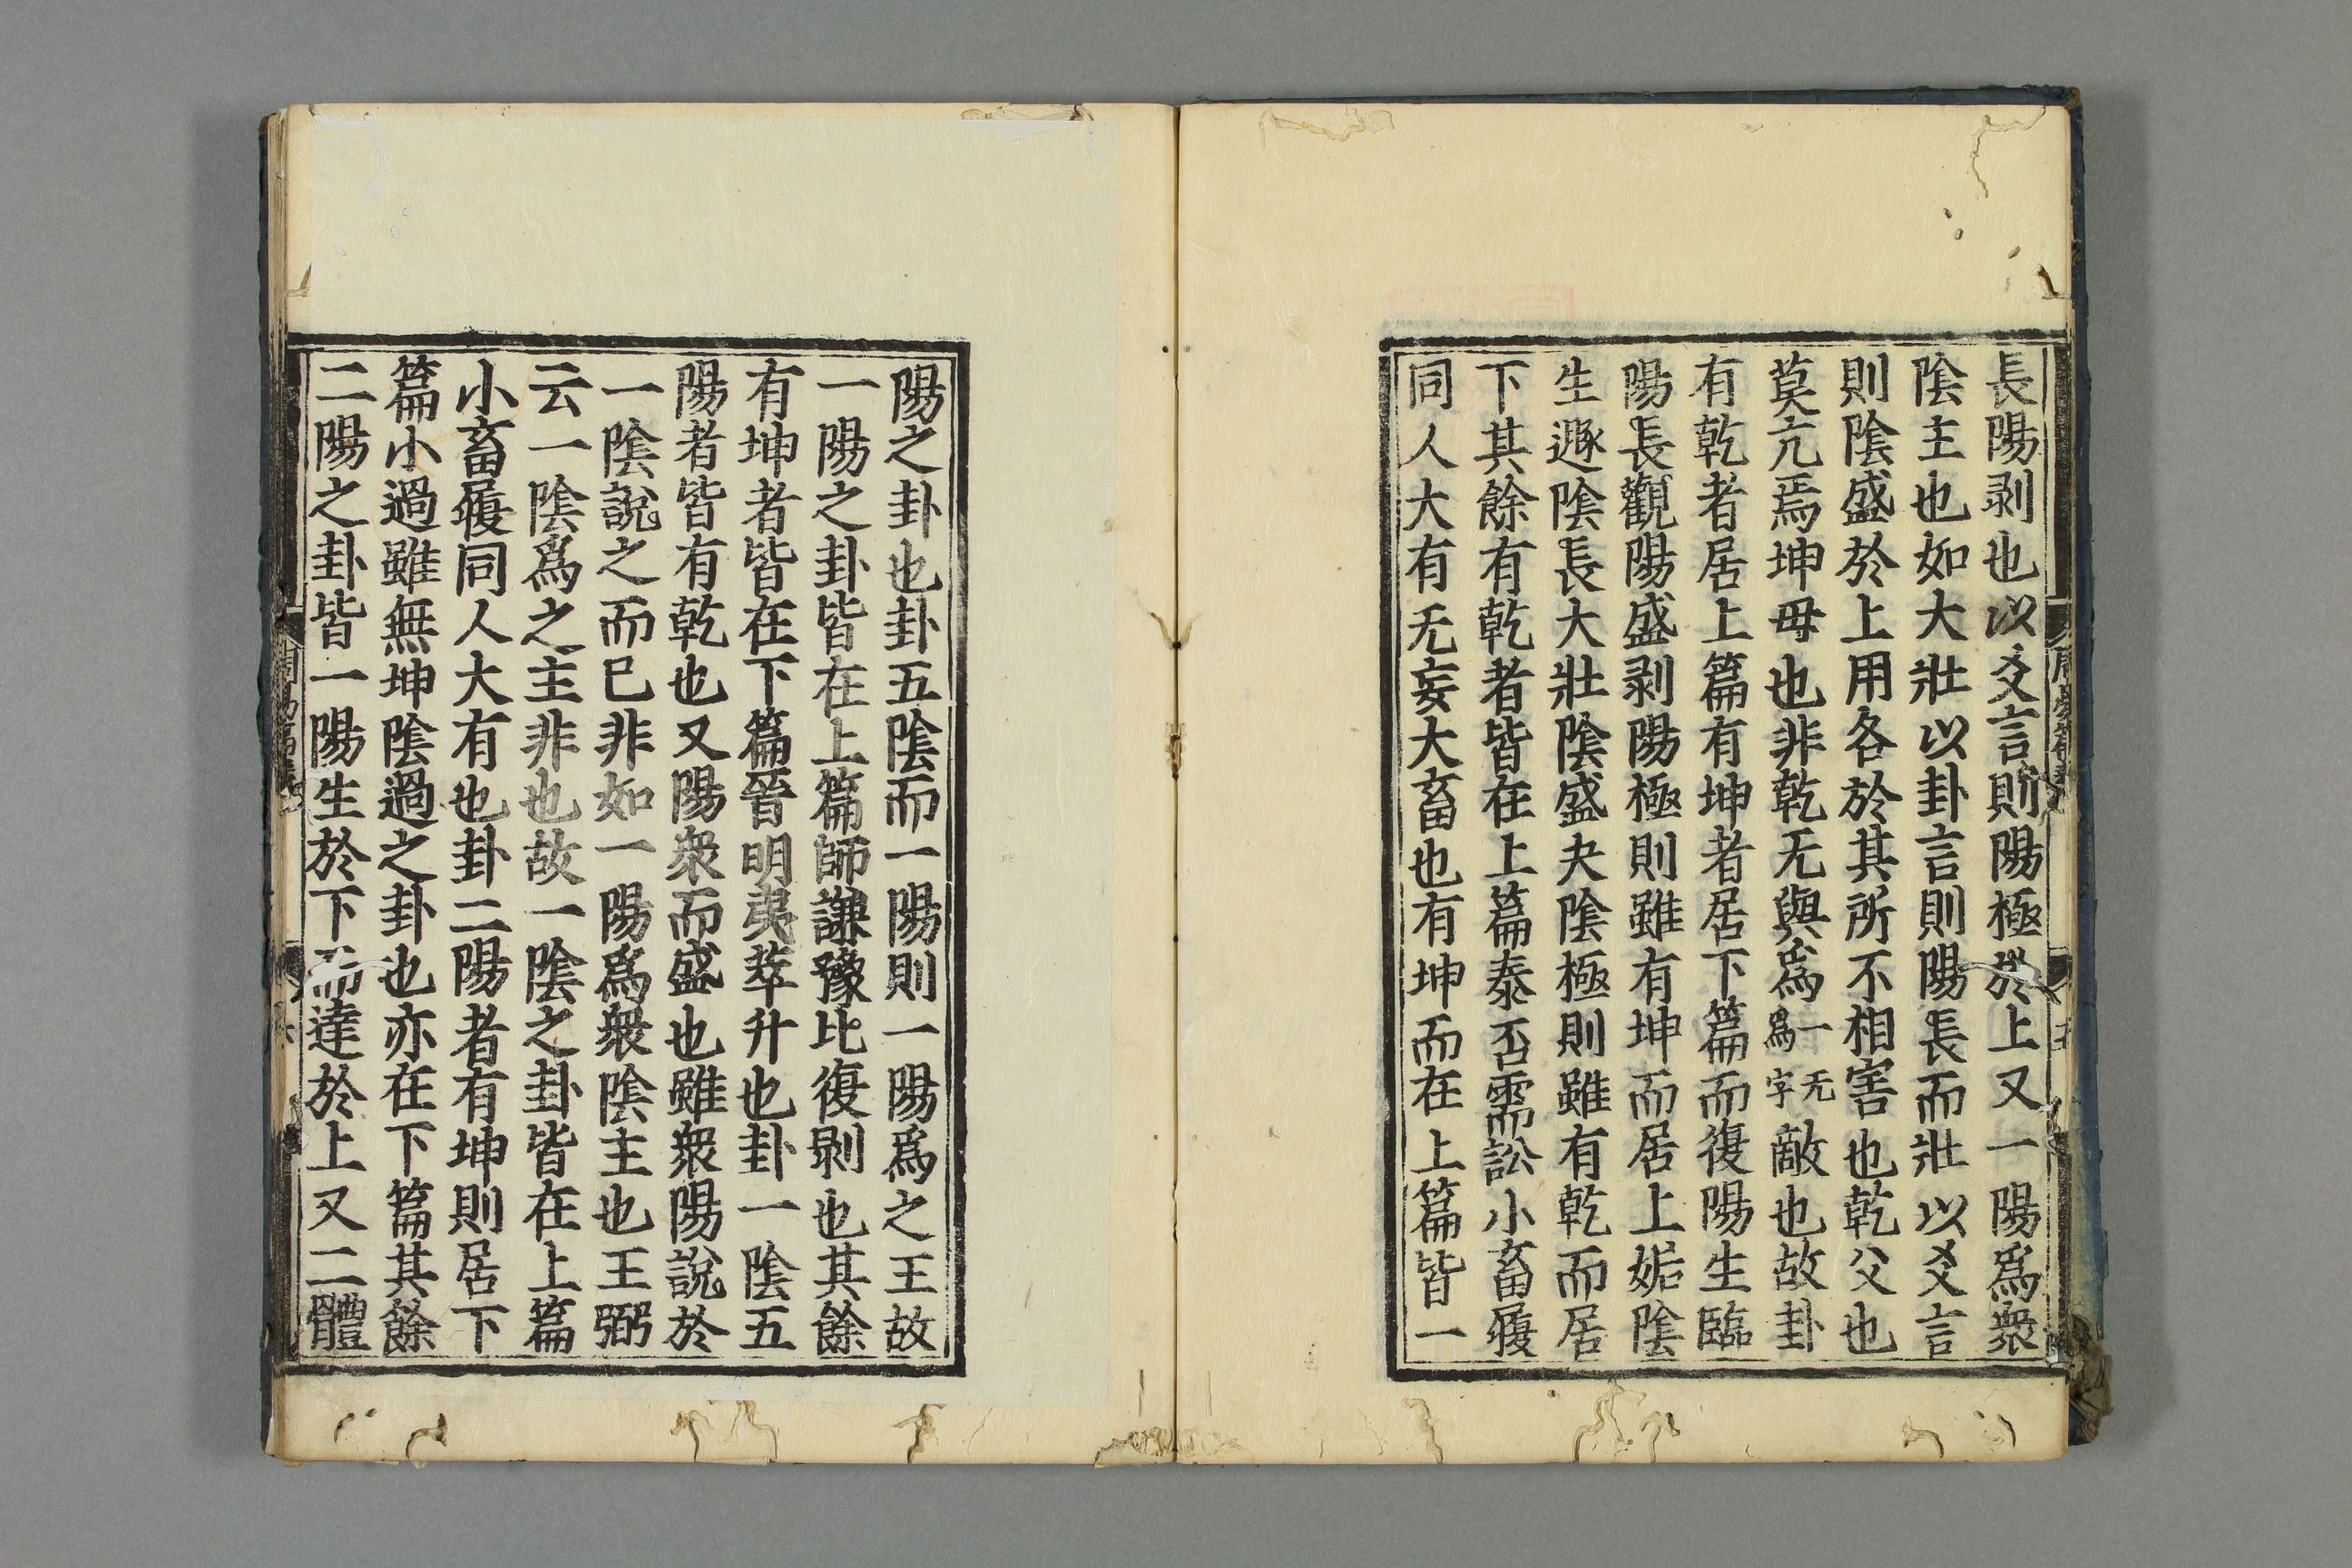 長陽剥也以爻言則陽極於上又一陽爲衆
陰主也如大壯以卦言則陽長而壯以爻言
則陰盛於上用各於其所不相害也乾父也
莫亢焉坤母也非乾无與爲一无爲字敵也故卦
有乾者居上篇有坤者居下篇而復陽生臨
陽長觀陽盛剥陽極則雖有坤而居上姤陰
生遯陰長大壯陰盛夬陰極則雖有乾而居
下其餘有乾者皆在上篇泰否需訟小畜履
同人大有无妄大畜也有坤而在上篇皆一
陽之卦也卦五陰而一陽則一陽爲之王故
一陽之卦皆在上篇師謙豫比復剥也其餘
有坤者皆在下篇晉明夷萃升也卦一陰五
陽者皆有乾也又陽衆而盛也雖衆陽說於
一陰說之而已非如一陽爲衆陰主也王弼
云一陰爲之主非也故一陰之卦皆在上篇
小畜履同人大有也卦二陽者有坤則居下
篇小過雖無坤陰過之卦也亦在下篇其餘
二陽之卦皆一陽生於下而達於上又二體